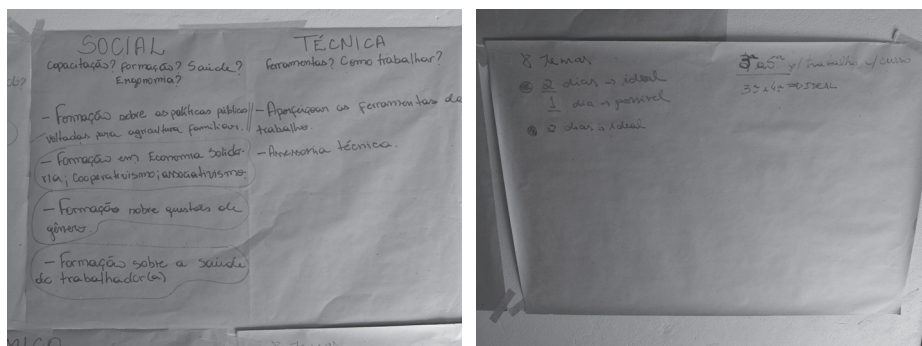 SOCIAL
Capacitação? Formação? Saúde?
Ergonomia?
- Formação sobre as políticas públicas
voltadas para agricultura familiar.
- Formação em Economia Solidá-
ria; Cooperativismo; associativismo.
- Formação sobre questões de
gênero.
- Formação sobre a saúde
do trabalhador(a)
TÉCNICA
Ferramentas? Como trabalhar?
- Aperfeiçoar as ferramentas de
trabalho.
- Assessoria técnica.
8 Temas
2 dias → ideal
1 dia → possível
2 dias → ideal